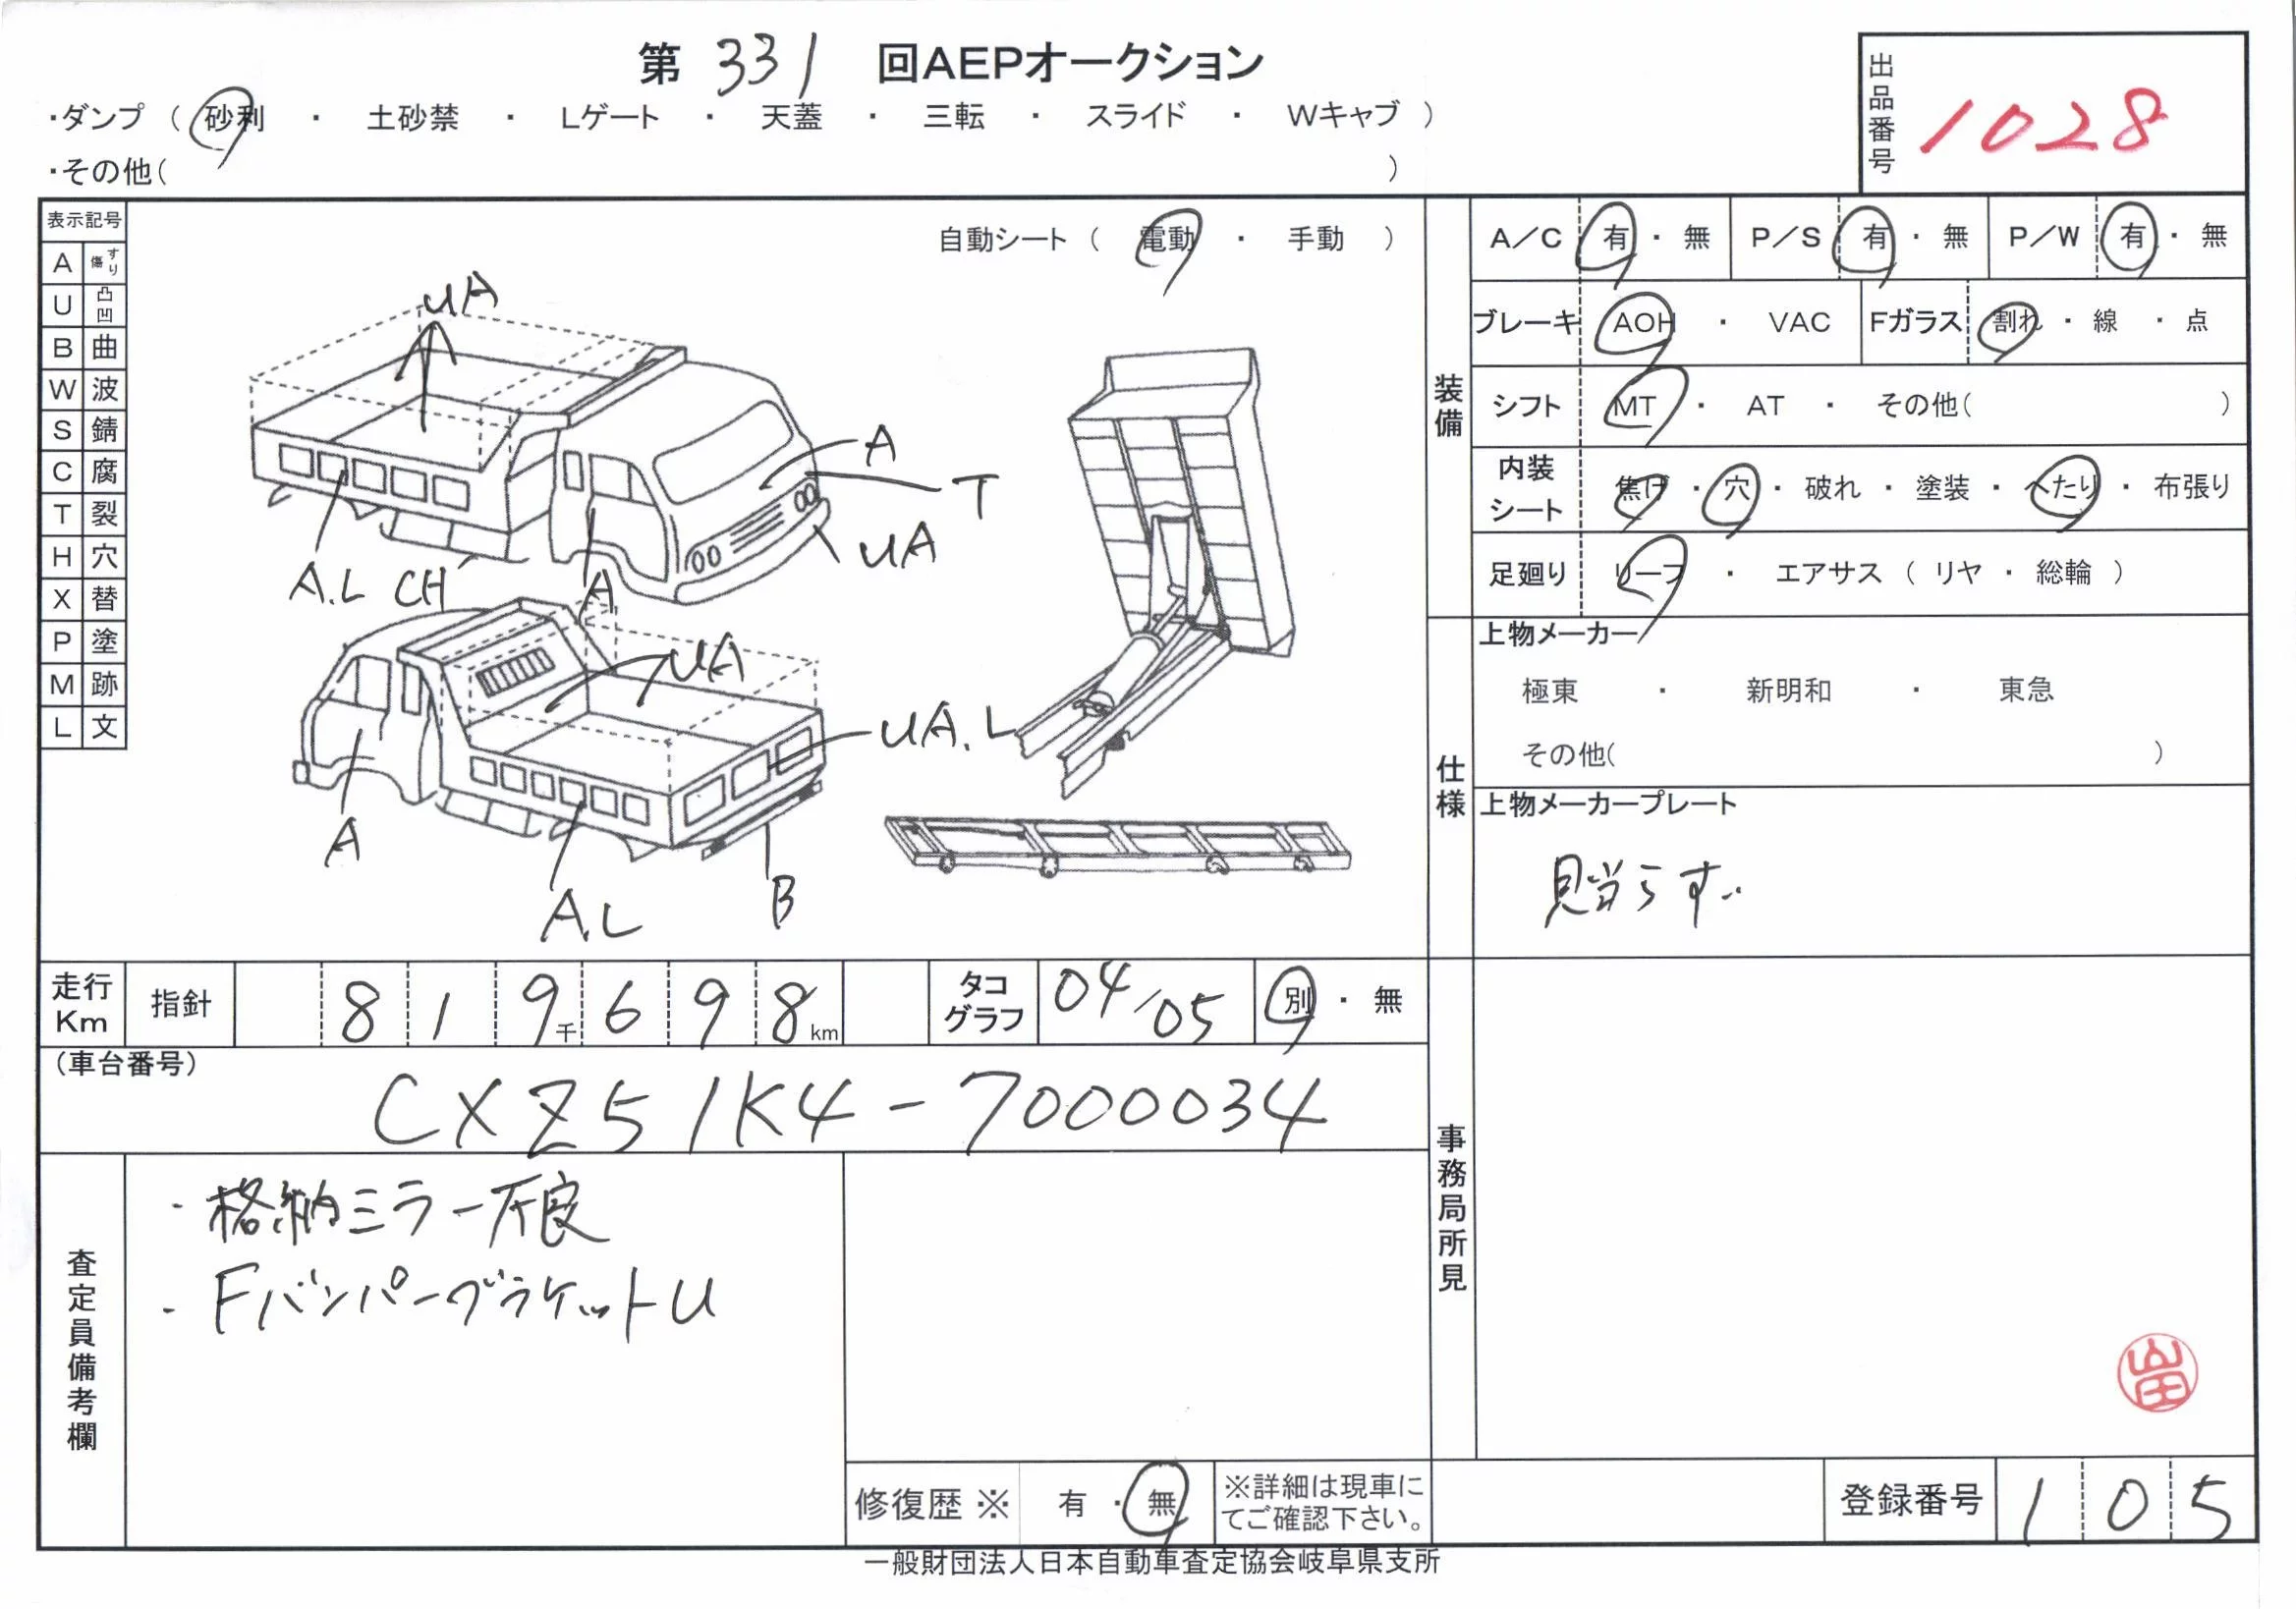 第 331 回AEPオークション
・ダンプ ( 砂利 ・ 土砂禁 ・ Lゲート ・ 天蓋 ・ 三転 ・ スライド ・ Wキャブ )
・その他( )
出品番号 1028
表示記号
A すり傷
U 凸凹
B 曲
W 波
S 錆
C 腐
T 裂
H 穴
X 替
P 塗
M 跡
L 文
自動シート ( 電動 ・ 手動 )
UA
A
T
UA
A.L CH
A
UA
UA.L
A
A.L
B
装備
A/C 有 ・ 無 P/S 有 ・ 無 P/W 有 ・ 無
ブレーキ AOH ・ VAC Fガラス 割れ ・ 線 ・ 点
シフト MT ・ AT ・ その他( )
内装シート 焦げ ・ 穴 ・ 破れ ・ 塗装 ・ へたり ・ 布張り
足廻り リーフ ・ エアサス ( リヤ ・ 総輪 )
仕様
上物メーカー
極東 ・ 新明和 ・ 東急
その他( )
上物メーカープレート
見当らず
走行Km 指針 8 1 9千 6 9 8km タコグラフ 04/05 別 ・ 無
(車台番号)
CXZ51K4-7000034
査定員備考欄
・格納ミラー不良
・Fバンパーブラケット U
事務局所見
山田
修復歴 ※ 有 ・ 無 ※詳細は現車にてご確認下さい。
登録番号 1 0 5
一般財団法人日本自動車査定協会岐阜県支所